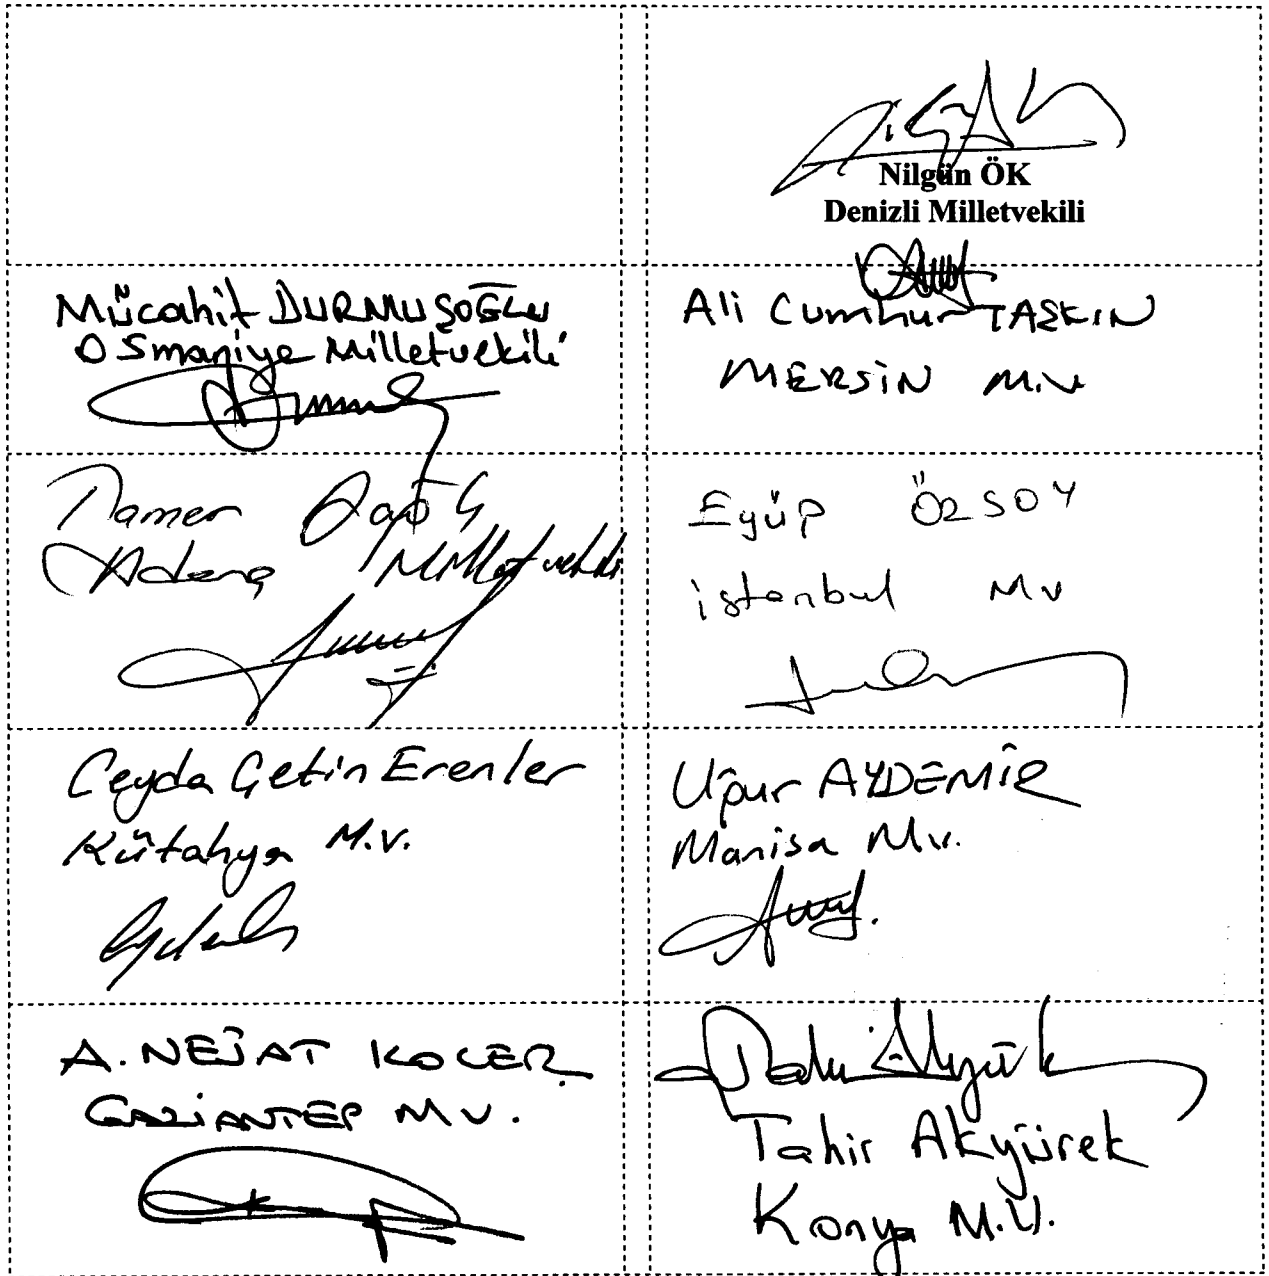 Nilgün ÖK
Denizli Milletvekili
Mücahit DURMUŞOĞLU
Osmaniye Milletvekili
Ali Cumhur TAŞKIN
MERSİN M.V.
Tamer
Adana Milletvekili
Eyüp ÖZSOY
istanbul Mv
Ceyda Çetin Erenler
Kütahya M.V.
Uğur AYDEMİR
Manisa Mv.
A. NEJAT KOÇER
GAZİANTEP MV.
Tahir Akyürek
Konya M.V.